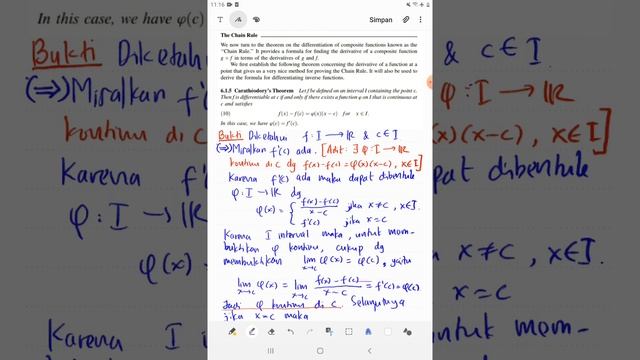 11:16
66%
Simpan
The Chain Rule
We now turn to the theorem on the differentiation of composite functions known as the
"Chain Rule." It provides a formula for finding the derivative of a composite function
g ∘ f in terms of the derivatives of g and f.
We first establish the following theorem concerning the derivative of a function at a
point that gives us a very nice method for proving the Chain Rule. It will also be used to
derive the formula for differentiating inverse functions.
6.1.5 Carathéodory's Theorem Let f be defined on an interval I containing the point c.
Then f is differentiable at c if and only if there exists a function φ on I that is continuous at
c and satisfies
(10) f(x) − f(c) = φ(x)(x − c) for x ∈ I.
In this case, we have φ(c) = f'(c).
Bukti Diketahui f : I → ℝ & c ∈ I
(⇒) Misalkan f'(c) ada. [Adt: ∃ φ : I → ℝ
kontinu di c dg f(x)-f(c) = φ(x)(x-c), x∈I]
Karena f'(c) ada maka dapat dibentuk
φ : I → ℝ dg
φ(x) = { f(x)-f(c) / x-c jika x≠c, x∈I.
f'(c) jika x=c
Karena I interval maka, untuk mem-
buktikan φ kontinu, cukup dg
membuktikan lim x→c φ(x) = φ(c), yaitu
lim x→c φ(x) = lim x→c f(x)-f(c) / x-c = f'(c) = φ(c).
Jadi φ kontinu di c. Selanjutnya
jika x=c maka
In this case, we have φ(c)
Bukti Diketah
(⇒) Misalkan f'
kontinu di c
Karena f'
φ : I → ℝ
φ(x)
Karena I
& c ∈ I
φ : I → ℝ
(x)(x-c), x∈I]
dibentuk
x≠c, x∈I.
x=c
untuk mem-